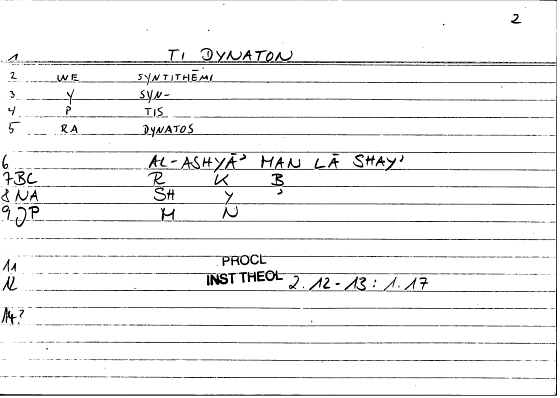 2
1 TI DYNATON
2 WE SYNTITHĒMI
3 Y SYN-
4 P TIS
5 RA DYNATOS
6 AL-ASHYĀʾ MAN LĀ SHAYʾ
7 BC R K B
8 NA SH Y ʾ
9 JP M N
11 PROCL
12 INST THEOL 2.12-13 : 1.17
14?